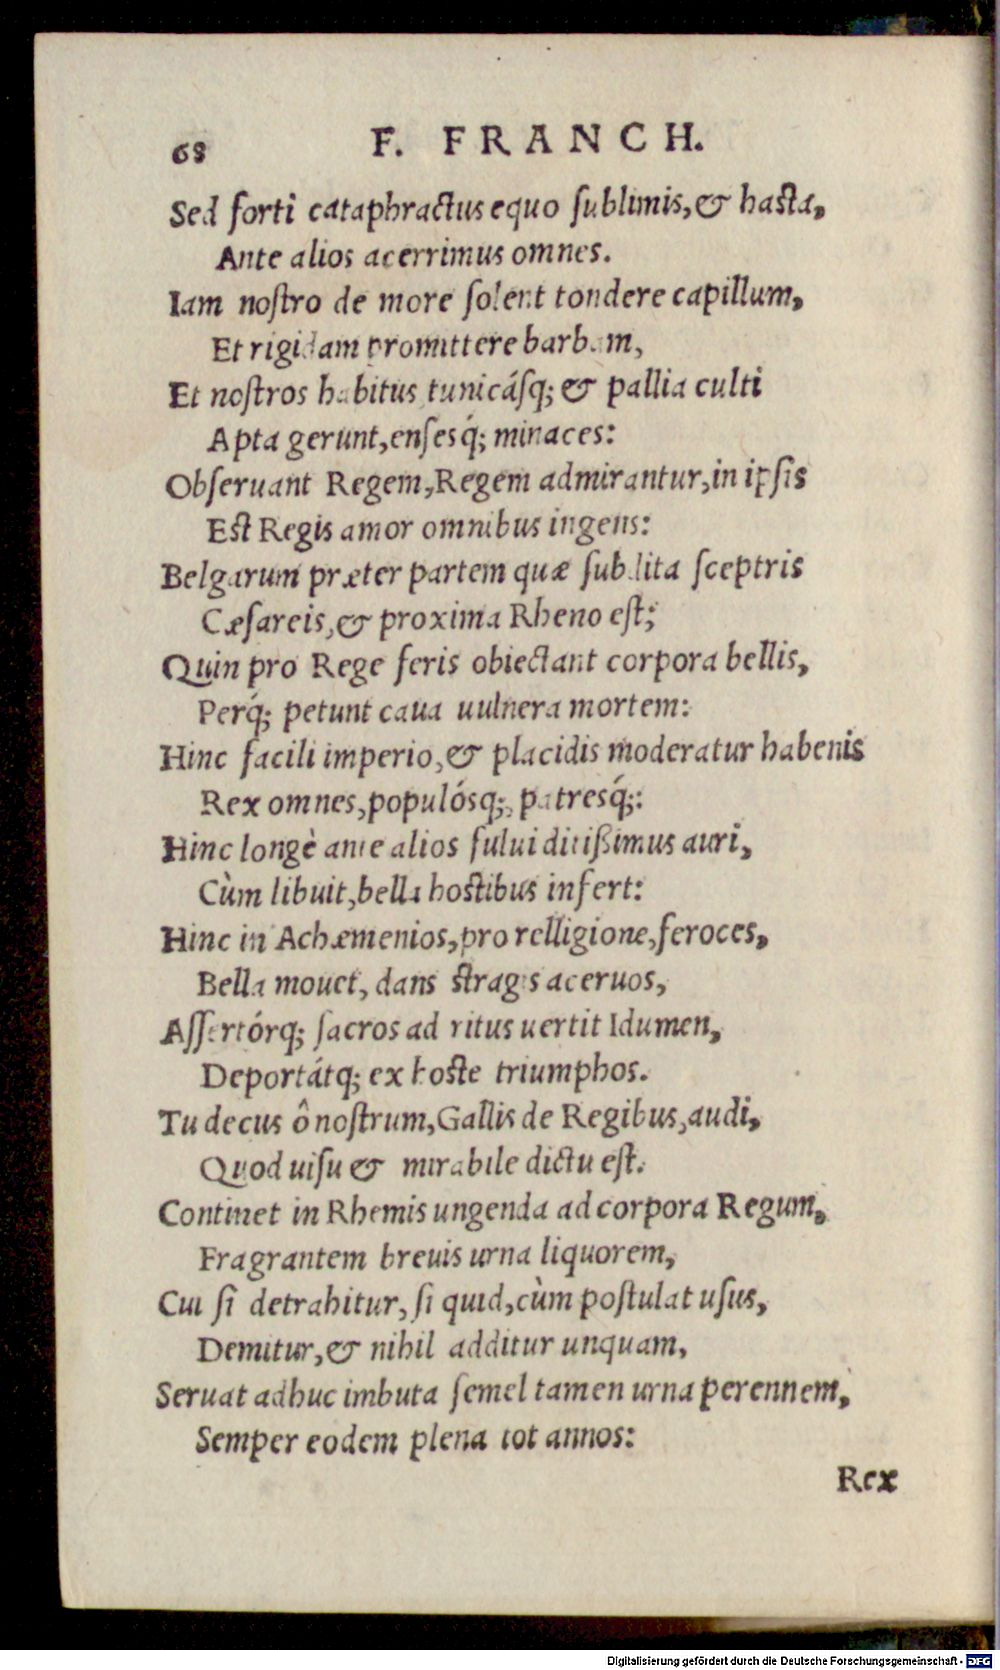 68 F. FRANCH.
Sed forti cataphractus equo ſublimis,& hasta,
Ante alios acerrimus omnes.
Iam noſtro de more ſolent tondere capillum,
Et rigidam promittere barbam,
Et noſtros habitus tunicáſq; & pallia culti
Apta gerunt,enſesq́; minaces:
Obſeruant Regem,Regem admirantur,in ipſis
Est Regis amor omnibus ingens:
Belgarum præter partem quæ ſubdita ſceptris
Cæſareis,& proxima Rheno eſt;
Quin pro Rege feris obiectant corpora bellis,
Perq́; petunt caua uulnera mortem:
Hinc facili imperio,& placidis moderatur habenis
Rex omnes,populósq;, patresq́;:
Hinc longè ante alios fului ditißimus auri,
Cùm libuit,bella hostibus infert:
Hinc in Achæmenios,pro relligione,feroces,
Bella mouet, dans strages aceruos,
Aſſertórq; ſacros ad ritus uertit Idumen,
Deportátq; ex hoste triumphos.
Tu decus ô noſtrum,Gallis de Regibus,audi,
Quod uiſu & mirabile dictu eſt.
Continet in Rhemis ungenda ad corpora Regum,
Fragrantem breuis urna liquorem,
Cui ſi detrahitur, ſi quid,cùm poſtulat uſus,
Demitur,& nihil additur unquam,
Seruat adhuc imbuta ſemel tamen urna perennem,
Semper eodem plena tot annos:
Rex
Digitalisierung gefördert durch die Deutsche Forschungsgemeinschaft - DFG